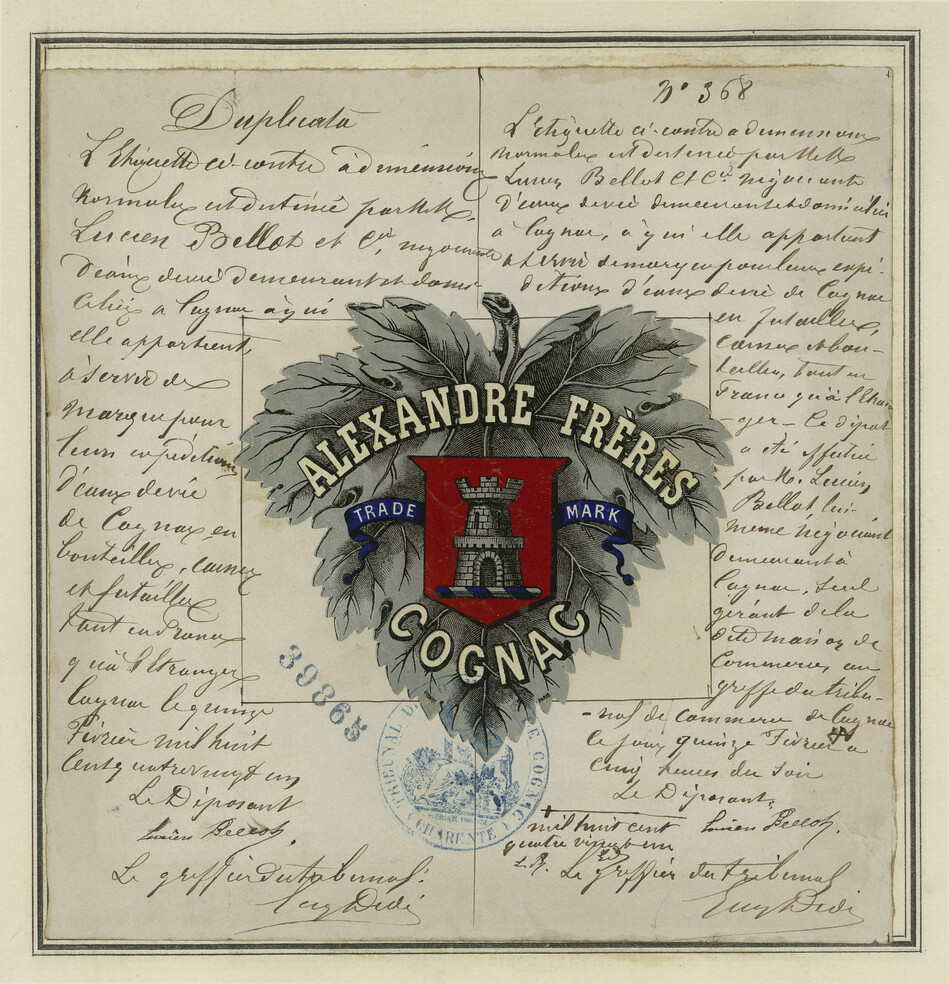 Duplicata
L'Etiquette ci-contre à dimensions
normales est destinée par MM.
Lucien Bellot et Cie, négociants
d'eaux de vie demeurant et domi-
ciliés à Cognac à qui
elle appartient,
à servir de
marque pour
leurs expéditions
d'eaux de vie
de Cognac en
bouteilles, caisses
et futailles
tant en France
qu'à l'Etranger
Cognac le quinze
Février mil huit
cent quatre vingt un
Le Déposant
Lucien Bellot
Le greffier du tribunal.
N° 368
L'Etiquette ci-contre a dimensions
normales est destinée par MM.
Lucien Bellot et Cie négociants
d'eaux de vie demeurant et domiciliés
à Cognac, à qui elle appartient
à servir de marque pour leurs expé-
ditions d'eaux de vie de Cognac
en futailles,
caisses et bou-
teilles, tant en
France qu'à l'Etran-
ger - Ce dépôt
a été effectué
par M. Lucien
Bellot lui-
même négociant
demeurant à
Cognac, seul
gérant de la
dite maison de
Commerce, au
greffe du tribu-
-nal de commerce de Cognac
ce jour quinze Février a
cinq heures du soir
Le Déposant,
Lucien Bellot.
+ mil huit cent
quatre vingt un
L. B.
Le Greffier du tribunal
ALEXANDRE FRÈRES
TRADE MARK
COGNAC
39865
TRIBUNAL DE COGNAC
(CHARENTE)